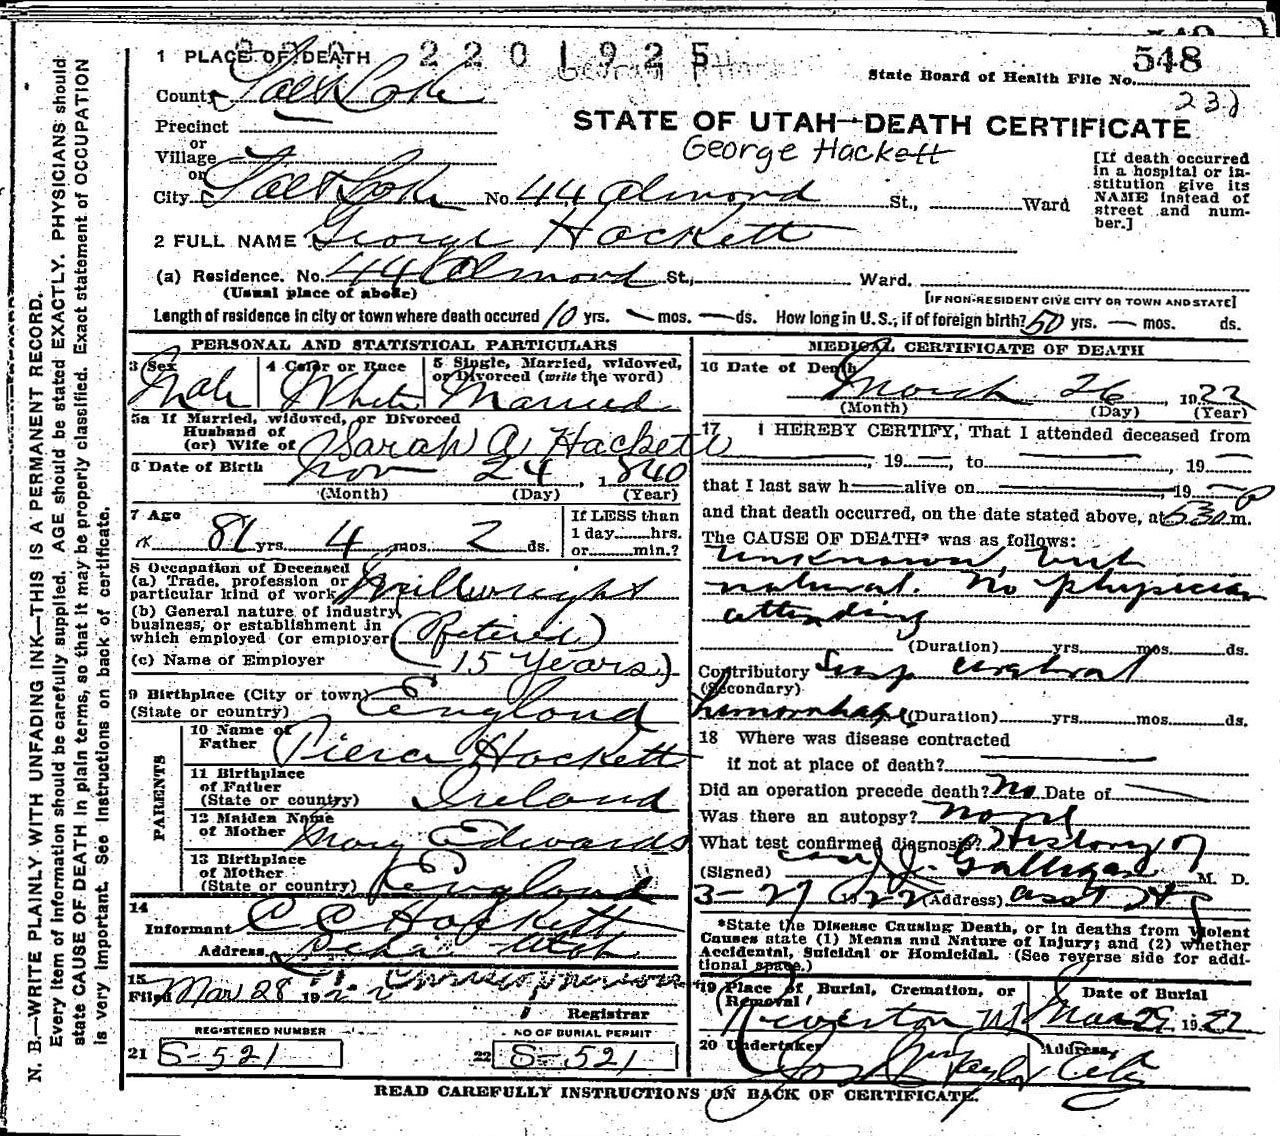 1 PLACE OF DEATH
220 1925
State Board of Health File No. 548
232
County Salt Lake
STATE OF UTAH—DEATH CERTIFICATE
George Hackett
Precinct
or
Village
or
City Salt Lake No. 44 Almond St., Ward
[If death occurred in a hospital or institution give its NAME instead of street and number.]
2 FULL NAME George Hackett
(a) Residence. No. 44 Almond St, Ward.
(Usual place of abode)
[IF NON-RESIDENT GIVE CITY OR TOWN AND STATE]
Length of residence in city or town where death occured 10 yrs. — mos. — ds. How long in U.S., if of foreign birth? 50 yrs. — mos. ds.
PERSONAL AND STATISTICAL PARTICULARS
3 Sex Male
4 Color or Race White
5 Single, Married, widowed, or Divorced (write the word) Married
5a If Married, widowed, or Divorced
Husband of
(or) Wife of Sarah A Hackett
6 Date of Birth Nov 24, 1840
(Month) (Day) (Year)
7 Age 81 yrs. 4 mos. 2 ds.
If LESS than
1 day......hrs.
or......min.?
8 Occupation of Deceased
(a) Trade, profession or
particular kind of work Millwright
(b) General nature of industry
business, or establishment in
which employed (or employer (Retired)
(c) Name of Employer (15 Years)
9 Birthplace (City or town)
(State or country) England
PARENTS
10 Name of
Father Pierce Hackett
11 Birthplace
of Father
(State or country) Ireland
12 Maiden Name
of Mother Mary Edwards
13 Birthplace
of Mother
(State or country) England
14
Informant C C Hackett
Address Utah
15
Filed Mar 28 1922
Registrar
REGISTERED NUMBER
21 S-521
NO OF BURIAL PERMIT
22 S-521
MEDICAL CERTIFICATE OF DEATH
16 Date of Death March 26, 1922
(Month) (Day) (Year)
17 I HEREBY CERTIFY, That I attended deceased from
, 19 —, to , 19 —
that I last saw h alive on , 19 —
and that death occurred, on the date stated above, at 530 P m.
The CAUSE OF DEATH* was as follows:
unknown, but
natural. No physician
attending
(Duration) yrs. mos. ds.
Contributory Susp cerebral
(Secondary)
hemorrhage (Duration) yrs. mos. ds.
18 Where was disease contracted
if not at place of death?
Did an operation precede death? no Date of
Was there an autopsy?
What test confirmed diagnosis? History of
case
(Signed) J. J. Galligan M. D.
3-27 1922 (Address) asst
*State the Disease Causing Death, or in deaths from Violent
Causes state (1) Means and Nature of Injury; and (2) whether
Accidental, Suicidal or Homicidal. (See reverse side for additional space.)
19 Place of Burial, Cremation, or
Removal Riverton Ut
Date of Burial
Mar 29 1922
20 Undertaker Jos Wm Taylor Address, City
READ CAREFULLY INSTRUCTIONS ON BACK OF CERTIFICATE.
N. B.—WRITE PLAINLY WITH UNFADING INK—THIS IS A PERMANENT RECORD.
Every item of information should be carefully supplied. AGE should be stated EXACTLY. PHYSICIANS should
state CAUSE OF DEATH in plain terms, so that it may be properly classified. Exact statement of OCCUPATION
is very important. See instructions on back of certificate.